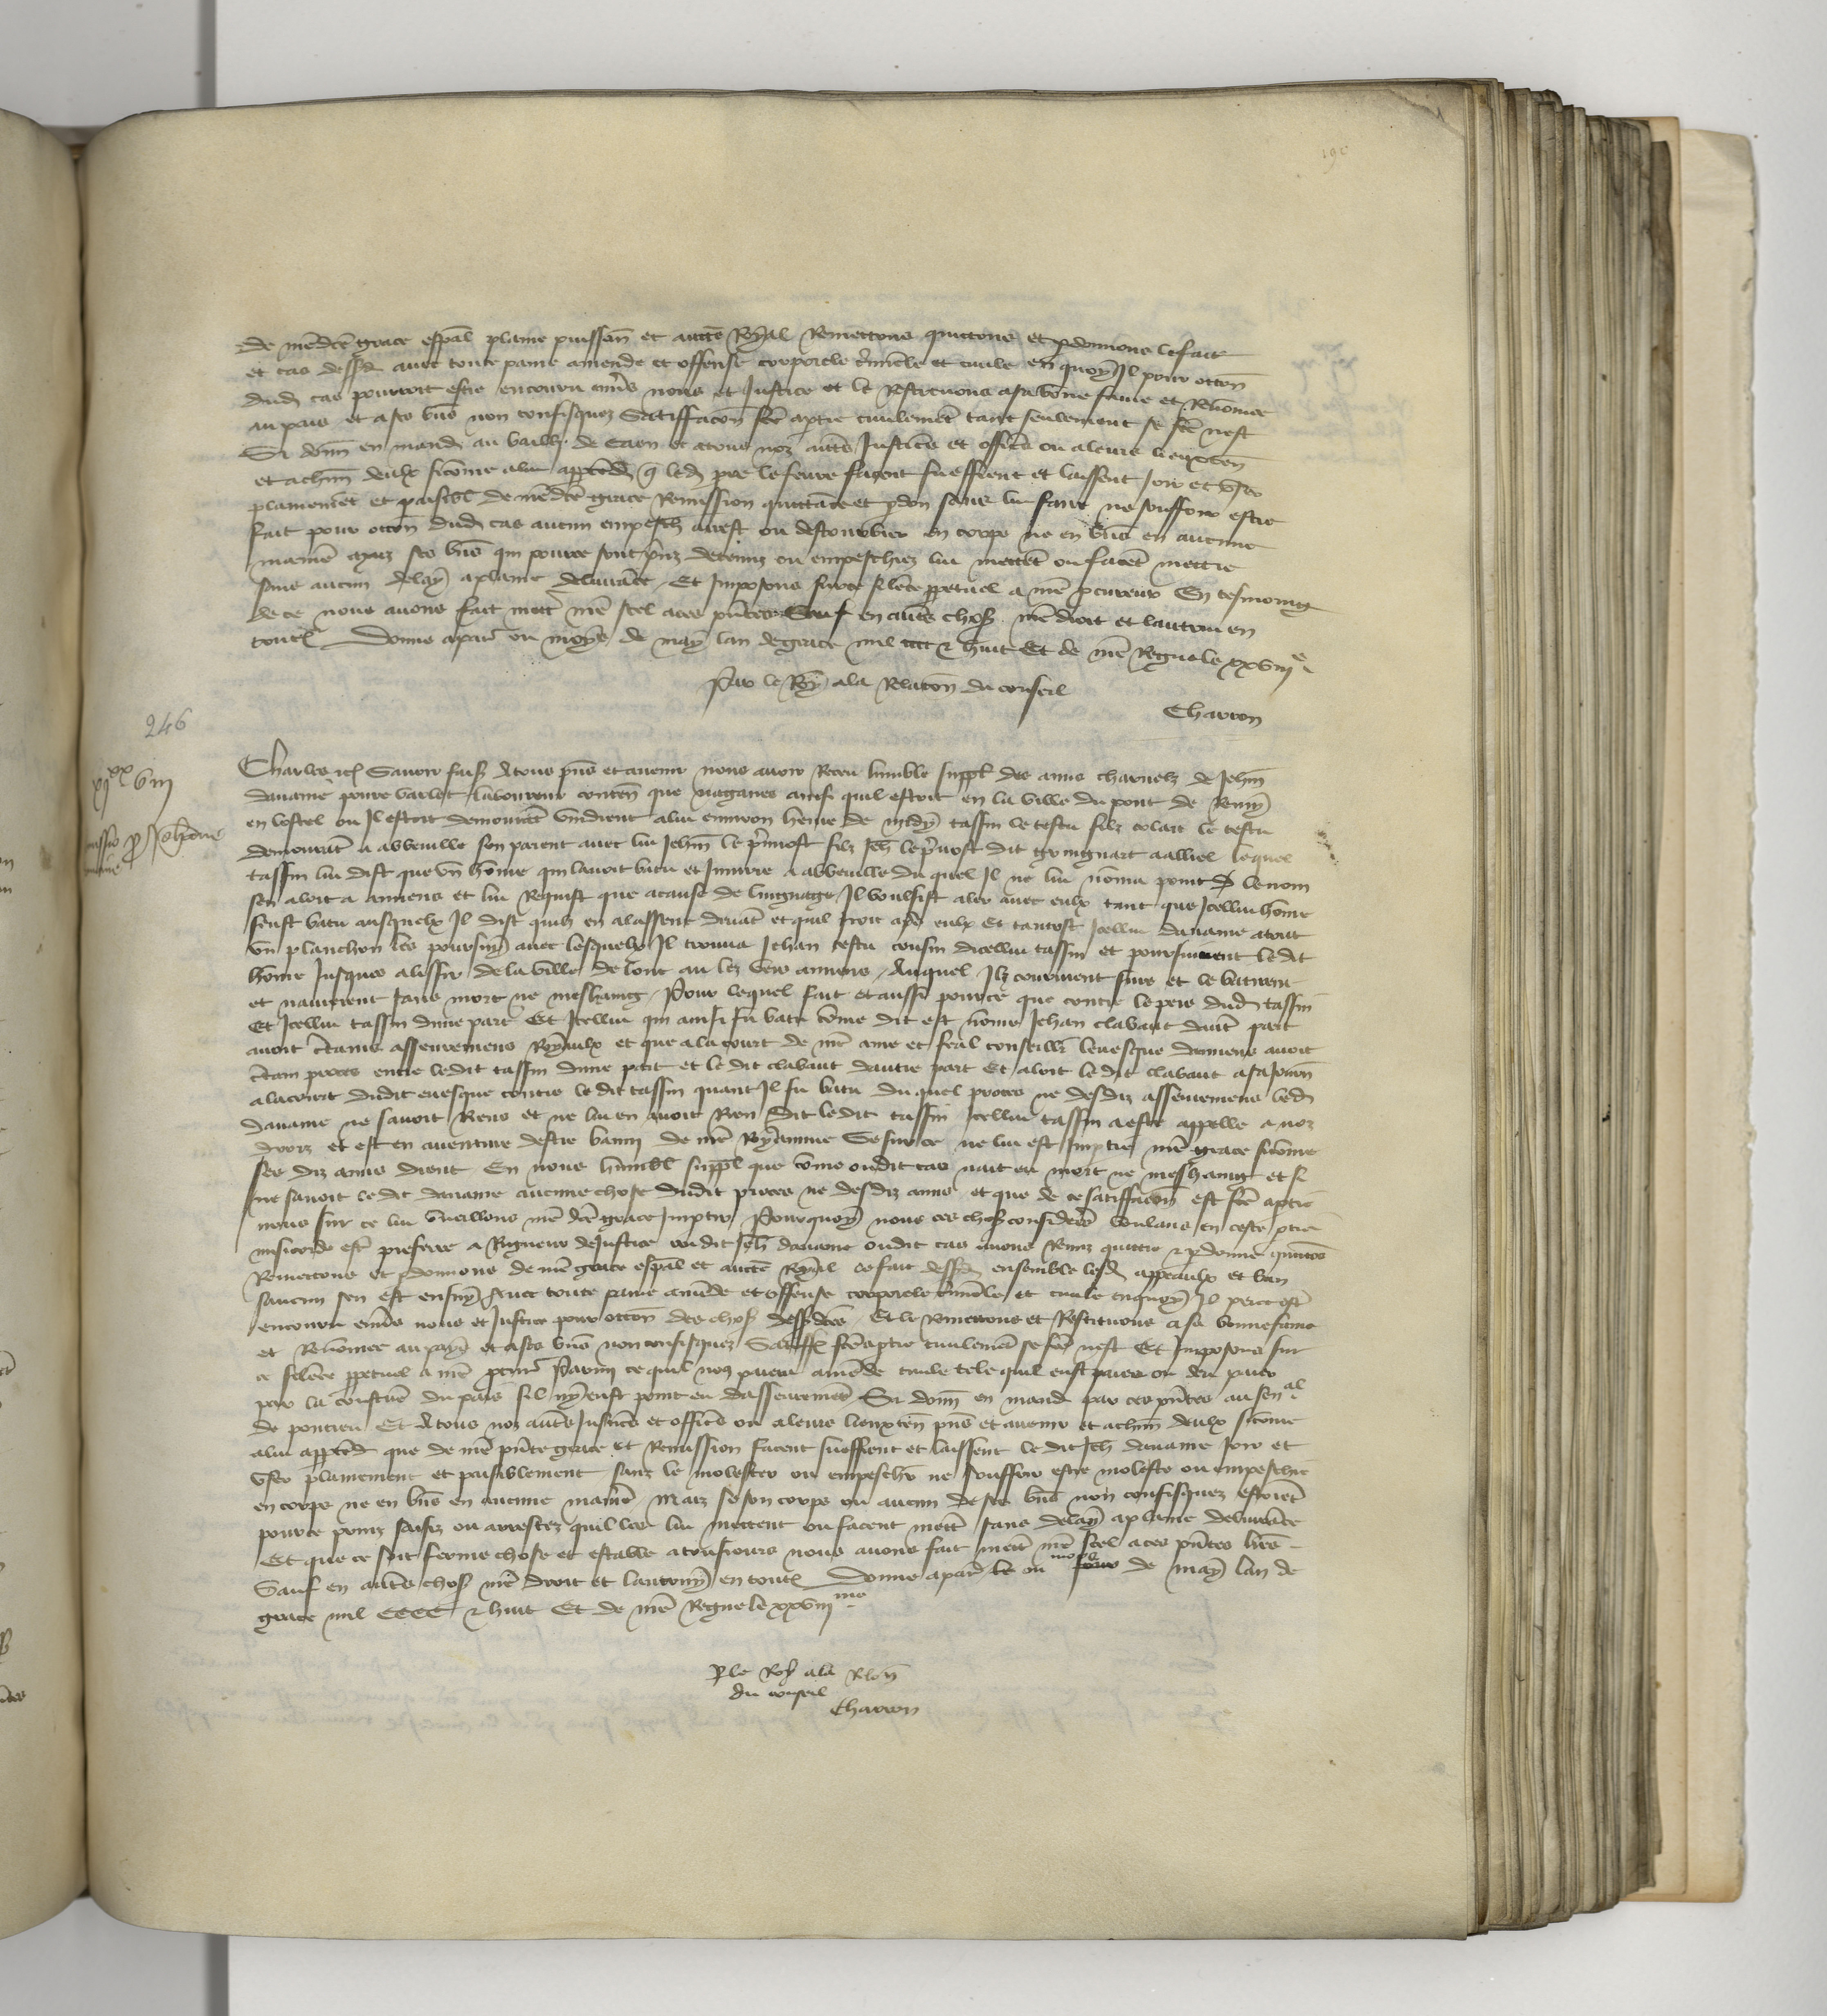 de nrē dcē grace espāl plaine puissan̄ et auctē Royāl Remettons quittons et pdonnons le fait
et cas dessd̄ auec toute paine amende et offense corporele crimele et ciuile en quoy Il pour occōn
dud̄ cas pourroit estre encouru enūs nous et Justice et le Restituons a sa bōne fame et Renōmee
au pais et a ses biēs non confisquez Satiffacōn fcē a ptie ciuilemēt tant seulement se fcē nest
Si donn̄ en mand̄ au bailli de Caen et a tous noz autēs Justicēs et officēs ou a leurs lieuxten̄
et a chūn deulx sicōme a lui apptēdr̄ q led̄ pre le feure facent sueffrent et laissent Joir et vser
plainemēt et paisibl̄ de nrē dcē grace Remission quittāce et pdon sans lui faire ne souffrir estre
fait pour occōn dud̄ cas aucun empeschē arrest ou destourbier en corps ne en biēs en aucune
maniē aincz ses biēs qui pource sont prīz detenuz ou empeschiez lui mettēt ou facēt mettre
sans aucun delay a plaine deliurāce Et Imposons sur ce silēce ppetuel a nrē pcureur En tesmoing
de ce nous auons fait mettr̄ nrē scel a ces pn̄tes Sauf en autēs choses nrē droit et lautrui en
toutes Donne a paris ou moys de may lan de grace mil cccc & huit Et de nrē Regne le xxviii e
Par le Roy a la Relacōn du conseil
Charron
246
xi xx viii
Remissio p Johe dauaine
Charles etc̄ Sauoir fais̄ A tous pn̄s et auenir nous auoir Receu humble suppl̄ des amis charnelz de Jehān
dauaine poure varlet laboureur conten̄ que nagaires ainsi quil estoit en la ville du pont de Remy
en lostel ou Il estoit demourāt vindrent a lui enuiron heure de midy tassin le testu filz colart le testu
demourāt a abbeuille son parent auec lui Jehān le preuost filz Jeh̄ le preuost dit gringnart aalliel lequel
tassin lui dist que vn hōme qui lauoit batu et Iniurie a abbeuille du quel Il ne lui nōma point le nom
sen aloit a amiens et lui Requist que a cause de lingnage Il voulsist aler auec eulx tant que Icellui hōme
feust batu ausquelx Il dist quilz en alassent deuāt et quil Iroit apres eulx Et tantost Icellui dauaine atout
vn planchon les poursuy auec lesquelx Il trouua Jehan testu cousin dicellui tassin et poursuirent ledit
hōme Jusques a lissir de la ville de lonc au lez vers amiens Auquel Ilz coururent sure et le batirent
et naurerent sans mort ne meshaing Pour lequel fait et aussi pource que contre le pere dud̄ tassin
Et Icellui tassin dune part Et Icellui qui ainsi fu batu cōme dit est nōme Jehan clabaut dautē part
auoit certains asseuremens Royaulx et que a la court de nrē ame et feal conseillr̄ leuesque damiens auoit
certain proces entre ledit tassin dune part et le dit clabaut dautre part Et aloit le dit clabaut a sa Journ̄
a la court dudit euesque contre le dit tassin quant Il fu batu du quel proces ne desdiz asseuremens led̄
dauaine ne sauoit Riens et ne lui en auoit Rien dit ledit tassin Icellui tassin a este appelle a noz
droiz et est en auenture destre banny de nrē Royaume Se sur ce ne lui est Impartie nrē grace sicōme
ses diz amis dient En nous humbl̄ suppl̄ que cōme oudit cas nait eu mort ne meshaing et si
ne sauoit ledit dauaine aucune chose dudit proces ne desdiz amis et que de ce satiffacōn est fcē a ptie
nous sur ce lui vueillons nrē dcē grace Impartir Pourquoy nous ces choses considerēs voulans en ceste ptie
misicorde estr̄ preferee a Rigueur de Justice audit Jeh̄ dauaine oudit cas auons Remiz quittie & pdonne quittōs
Remettons et pdonnons de nrē grace espāl et auctē Royāl le fait dessd̄ ensemble lesd̄ appeaulx et ban
saucun sen est ensuy auec toute paine amēde et offense corporele crimele et ciuile en quoy Il peut estr̄
encouru enūs nous et Justice pour occōn des choses dessdcēs Et le Remettons et Restituons a sa bonne fame
et Renōmee au pays et a ses biēs non confisquez Satiffac̄ fcē a ptie ciuilemēt se fcē nest Et Imposons sur
ce silēce ppetuel a nrē pcur̄ Parmi ce quil nous paiera amēde ciuile tele quil eust paiee ou deu paier
par la coustume du pais sil ny eust point eu dasseuremēt Si donn̄ en mand̄ par ces pn̄tes au sen al
de pontieu Et A tous noz autēs Justicēs et officēs ou a leurs lieuxten̄ pn̄s et auenir et a chūn deulx sicōme
a lui apptēdr̄ que de nrē pn̄te grace et Remission facent sueffrent et laissent le dit Jeh̄ dauaine Joir et
vser plainement et paisiblement sans le molester ou empeschr̄ ne souffrir estre moleste ou empeschie
en corps ne en biēs en aucune maniē Maiz se son corps ou aucun de ses biēs non confisquez estoiēt
pource priniz saisiz ou arrestez quil les lui mettent ou facent mettr̄ sans delay a plaine deliurāce
Et que ce soit ferme chose et estable a tousiours nous auons fait mettr̄ nrē scel a ces pn̄tes lrēs
Sauf en autēs choses nrē droit et lautruy en toutes Donne a paris le ou moys de may lan de
grace mil CCCC & huit Et de nrē Regne le xxviii me
P le Roy a la Rlon̄
du conseil
Charron